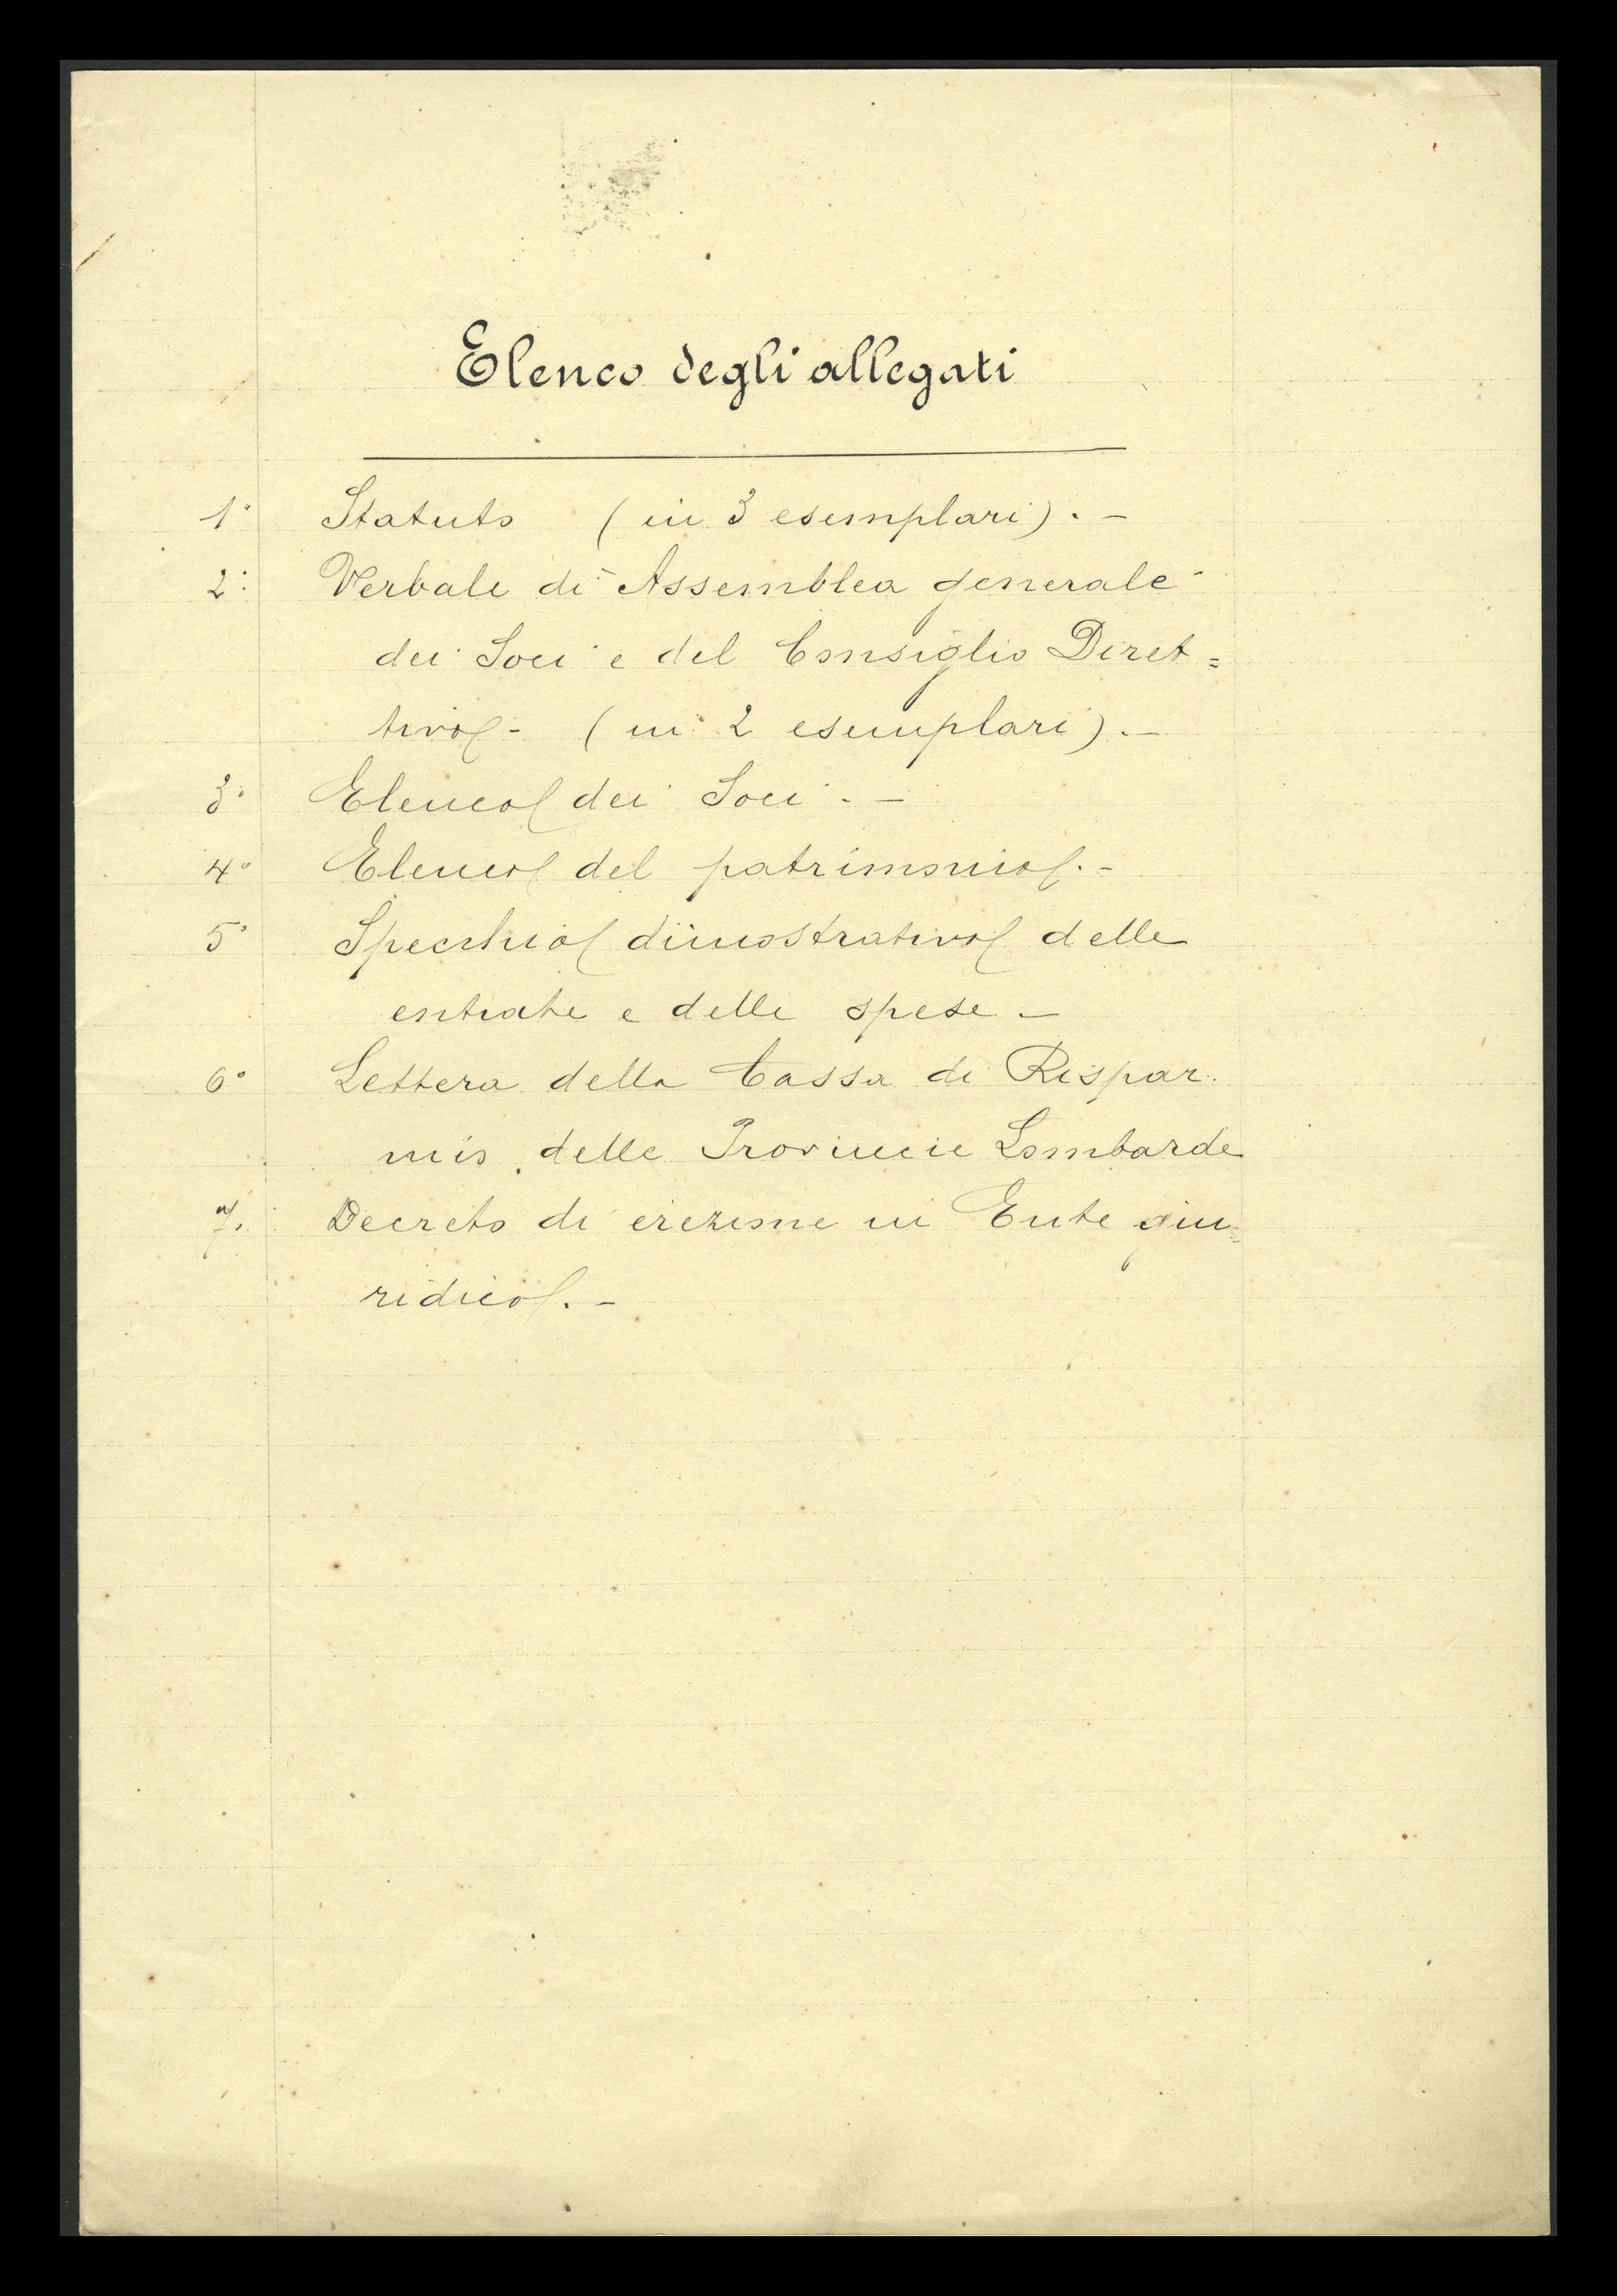 Elenco degli allegati
1° Statuto (in 3 esemplari). -
2° Verbale di Assemblea generale
dei Soci e del Consiglio Diret=
tivo - (in 2 esemplari). -
3° Elenco dei Soci. -
4° Elenco del patrimonio. -
5° Specchio dimostrativo delle
entrate e delle spese -
6° Lettera della Cassa di Rispar-
mio delle Provincie Lombarde
7. Decreto di erezione in Ente giu=
ridico. -